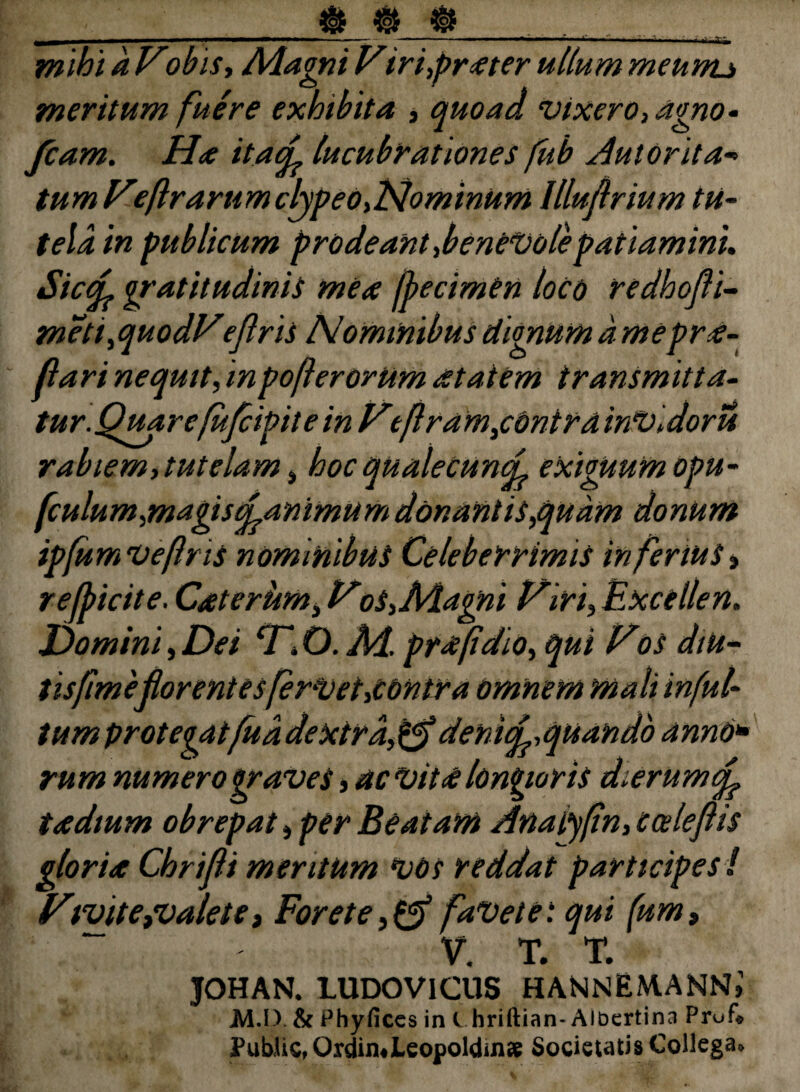 mihi à Vobis, Magni Viri,præter ullum meum
meritum fuêre exhibita , quoad vixero, agno-
ſcam. Hæ itaq; lucubrationes ſub Autorita-
tum Veſtrarum clypeo,Nominum Illuſtrium tu-
telâ in publicum prodeant,benevolè patiamini.
Sicq; gratitudinis meæ ſpecimen loco redhoſti-
mẽti,quodVeſtris Nominibus dignum à me præ-
ſtari nequit,in poſterorum ætatem transmitta-
tur.Quare ſuſcipite in Veſtram,contrà invidorũ
rabiem,tutelam, hoc qualecunq; exiguum opu-
ſculum,magisq;animum donantis,quàm donum
ipſum veſtris nominibus Celeberrimis inferius,
reſpicite. Cæterùm, Vos,Magni Viri, Excellen.
Domini, Dei T.O.M. præſidio, qui Vos diu-
tisſimè florentes ſervet,contra omnem mali inſul-
tum protegat ſuâ dextrâ,& deniq;,quando anno-
rum numero graves, ac vitæ longioris dierumq;
tædium obrepat, per Beatam Analyſin, cœleſtis
gloriæ Chriſti meritum vos reddat participes!
Vivite,valete, Forete,& favete: qui ſum,
V. T. T.
JOHAN. LUDOVICUS HANNEMANN,
M.D. & Phyſices in Chriſtian-Albertina Prof.
Public, Ordin.Leopoldinæ Societatis Collega.